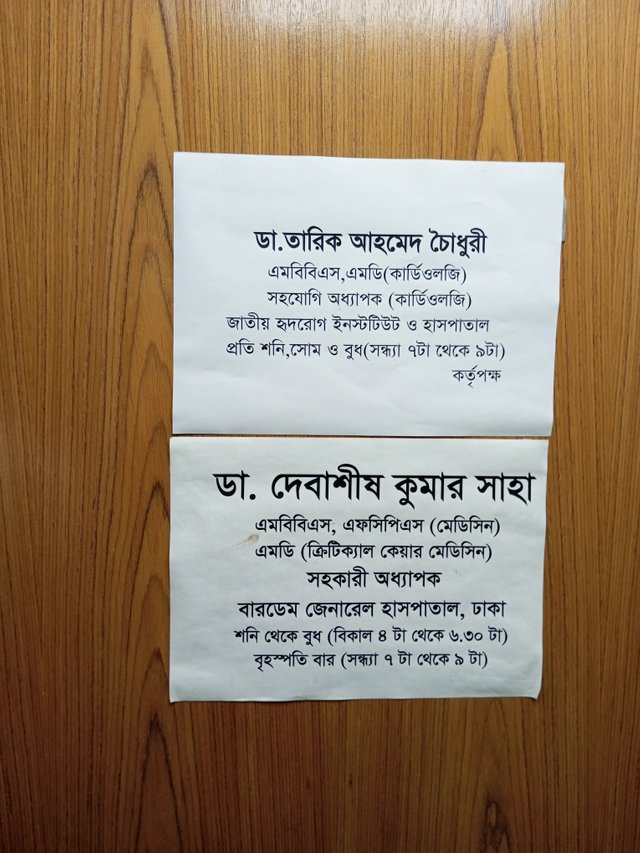 ডা.তারিক আহমেদ চৈাধুরী
এমবিবিএস,এমডি(কার্ডিওলজি)
সহযোগি অধ্যাপক (কার্ডিওলজি)
জাতীয় হৃদরোগ ইনস্টটিউট ও হাসপাতাল
প্রতি শনি,সোম ও বুধ(সন্ধ্যা ৭টা থেকে ৯টা)
কর্তৃপক্ষ
ডা. দেবাশীষ কুমার সাহা
এমবিবিএস, এফসিপিএস (মেডিসিন)
এমডি (ক্রিটিক্যাল কেয়ার মেডিসিন)
সহকারী অধ্যাপক
বারডেম জেনারেল হাসপাতাল, ঢাকা
শনি থেকে বুধ (বিকাল ৪ টা থেকে ৬.৩০ টা)
বৃহস্পতি বার (সন্ধ্যা ৭ টা থেকে ৯ টা)